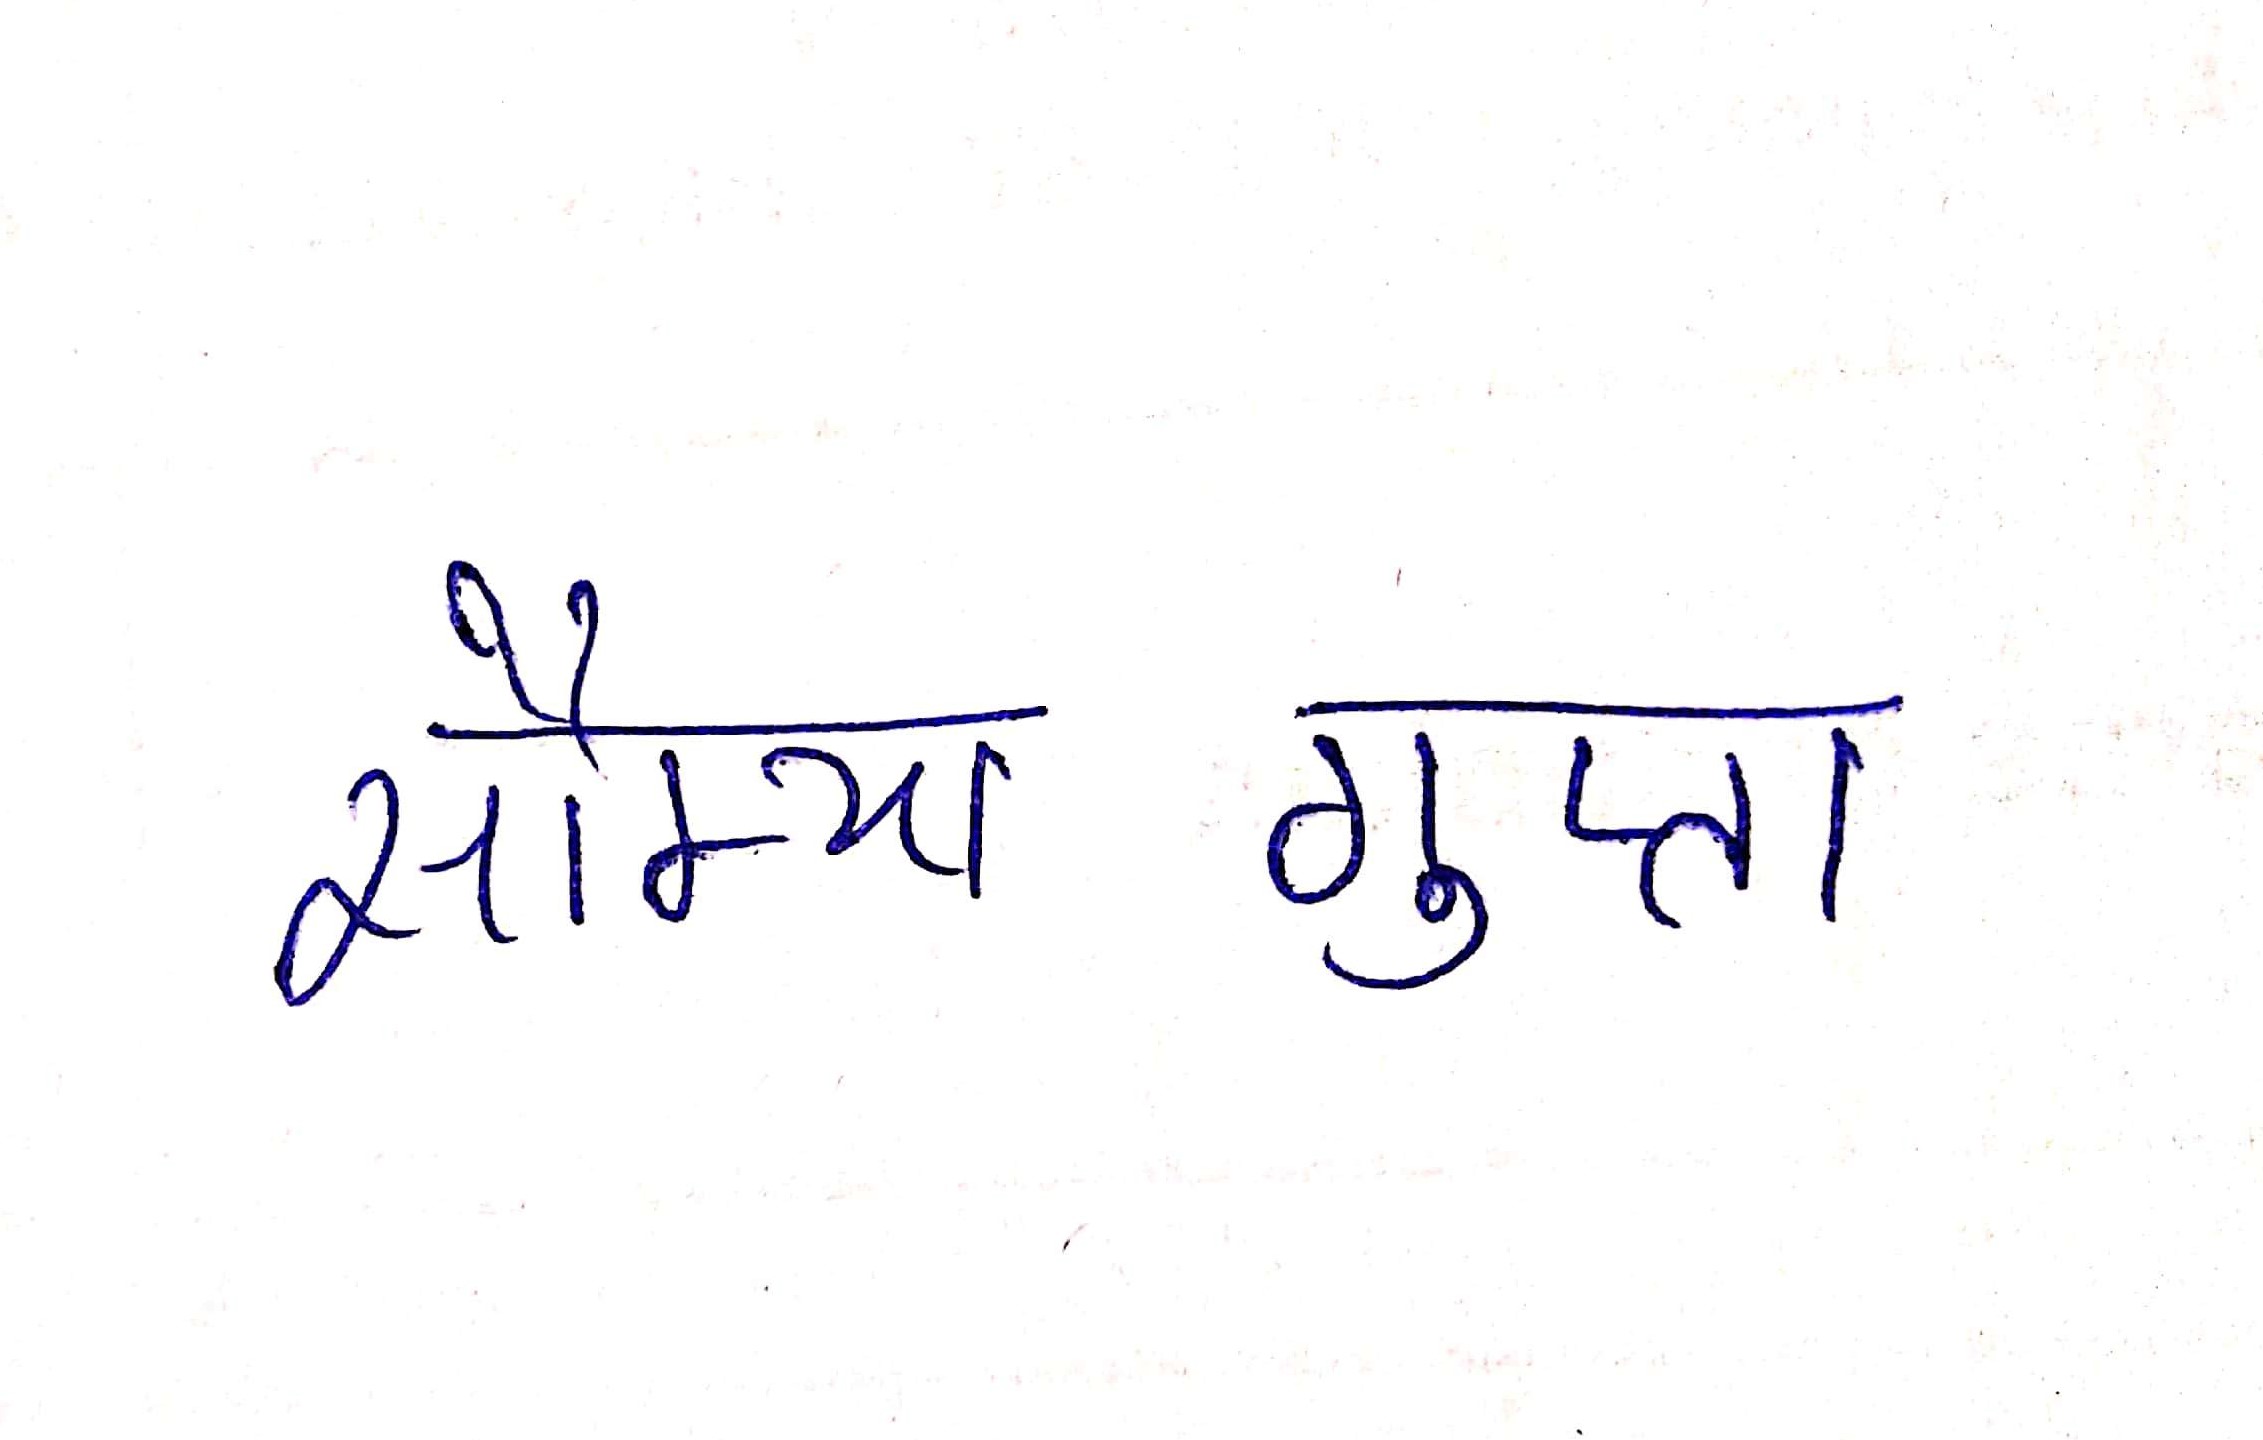 सौम्या गुप्ता